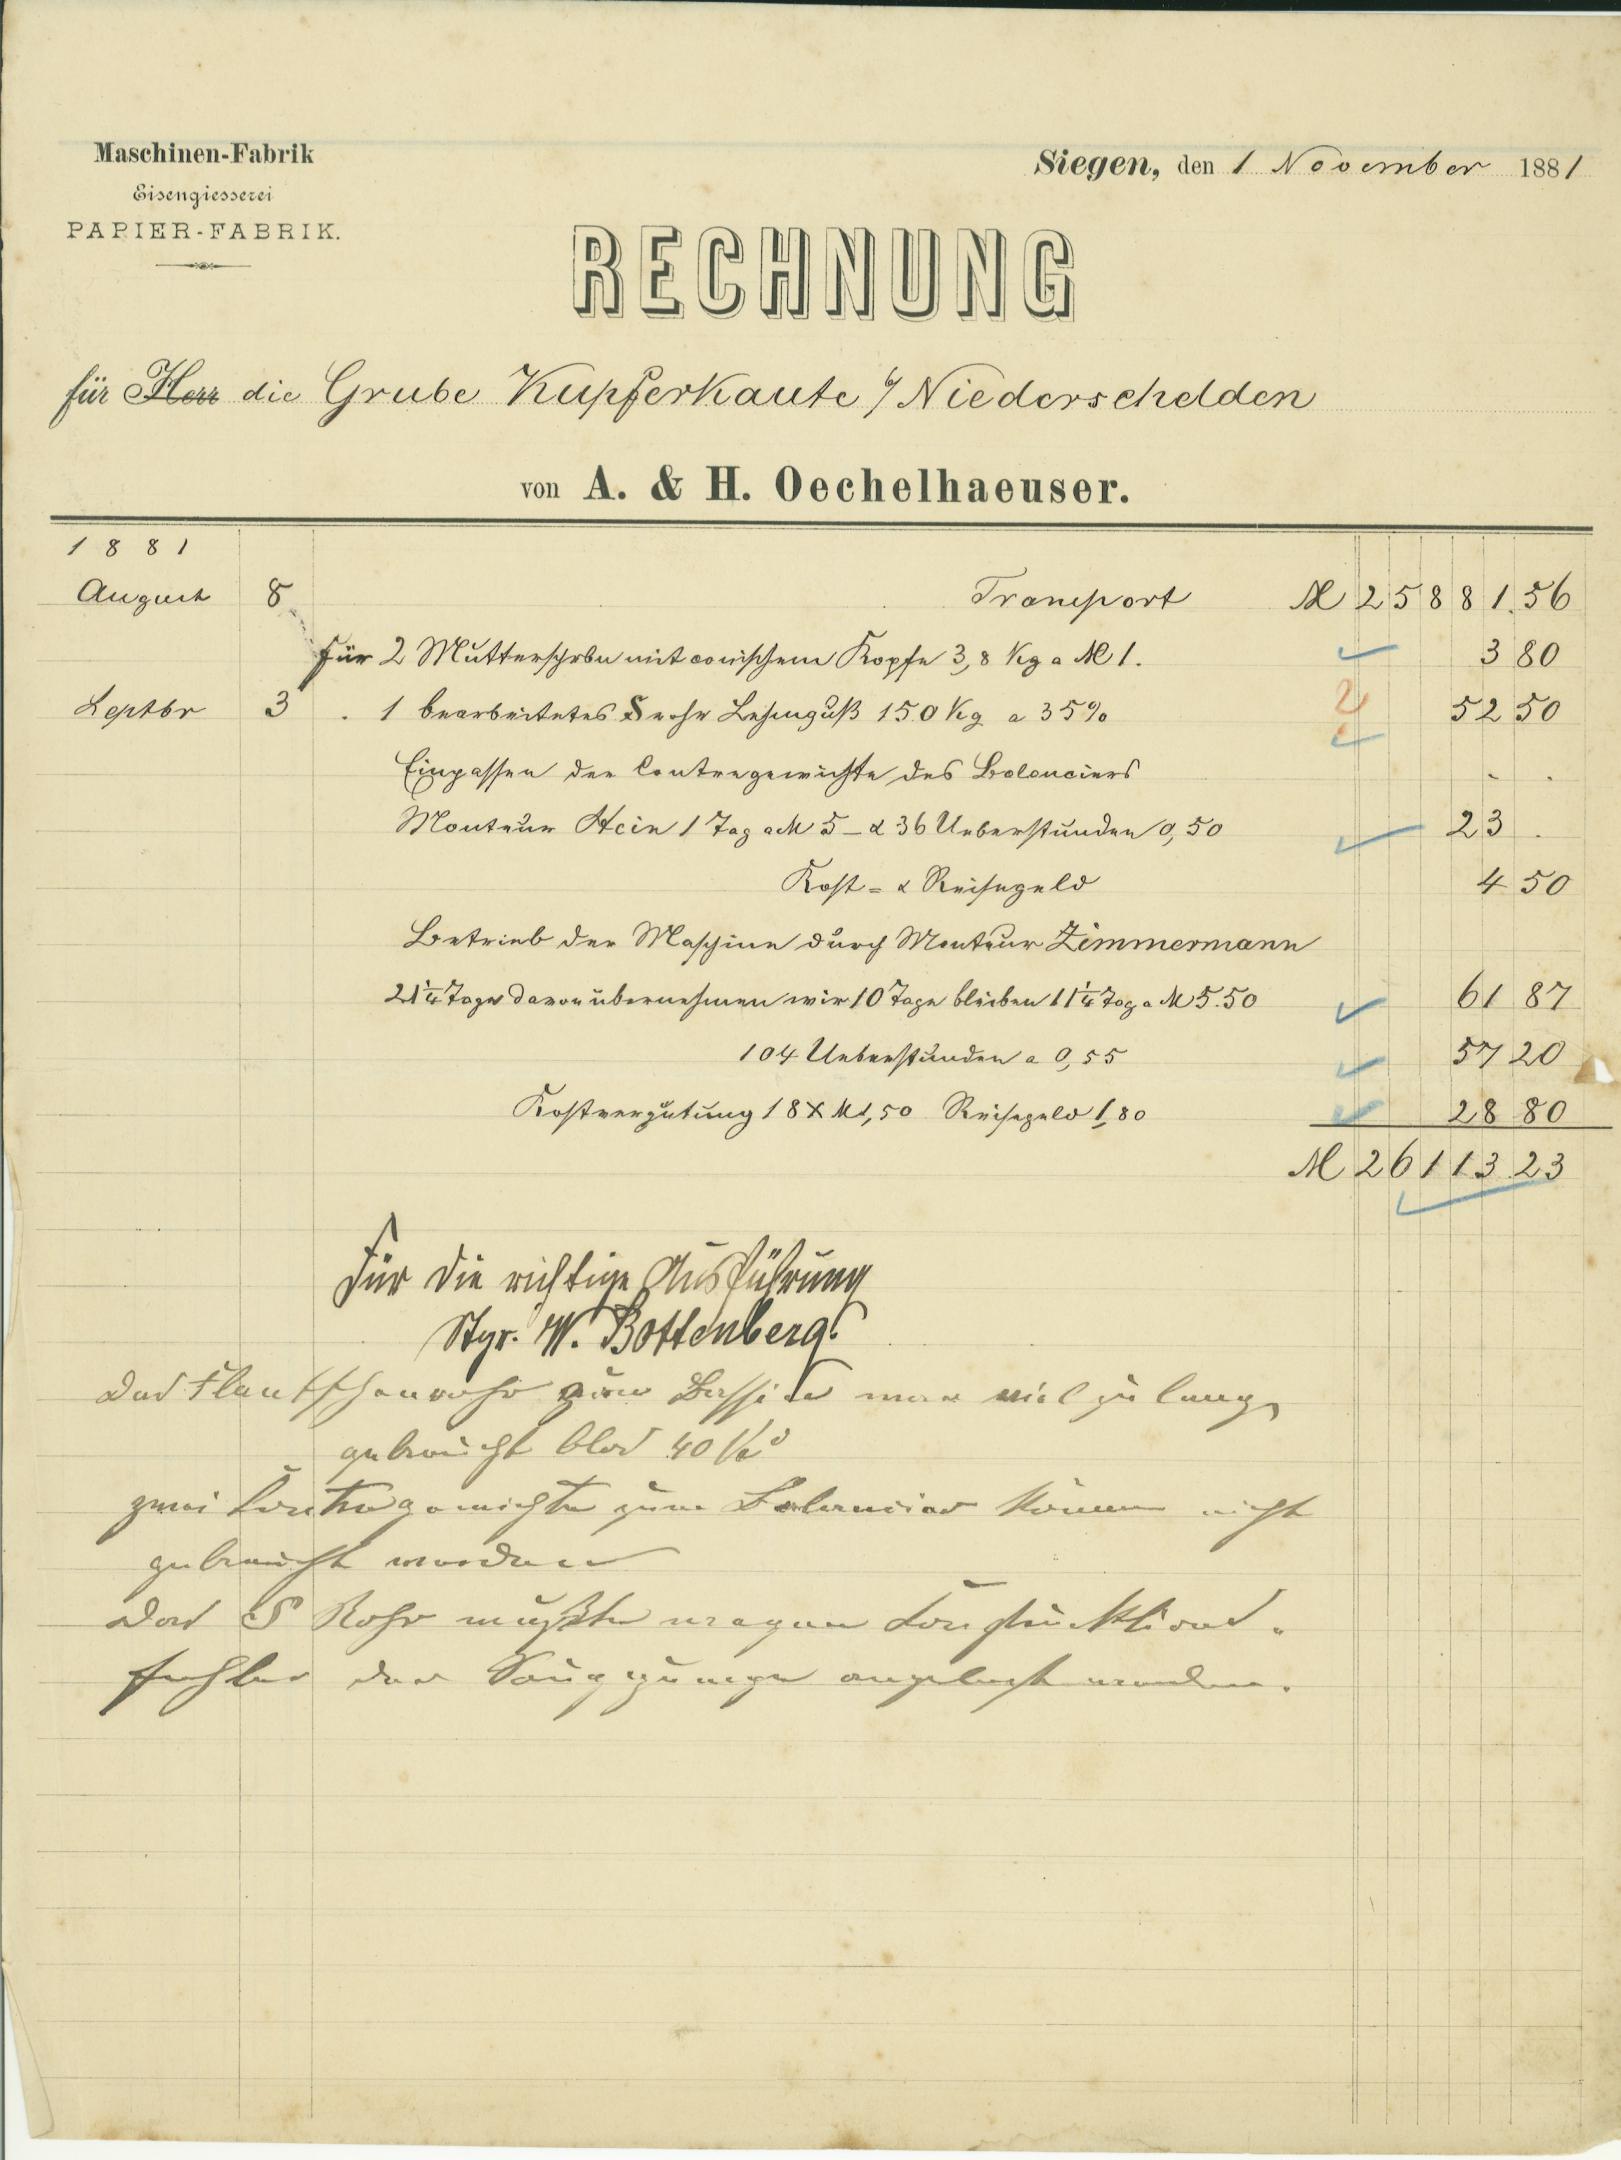 Maschinen-Fabrik
Eisengiesserei
PAPIER-FABRIK.
Siegen, den 1 November 1881
RECHNUNG
für Herr die Grube Kupferkaute b/ Niederschelden
von A. & H. Oechelhaeuser.
1881
August 8 Transport M 25881.56
Für 2 Mutterschrbn mit conischem Kopfe 3,8 Kg a M 1. 3 80
Septbr 3 . 1 bearbeitetes S rohr Lehmguß 150 Kg a 35% 52 50
Einpassen der Contregewichte des Balanciers - .
Monteur Hein 1 Tag a M 5 - & 36 Ueberstunden 0,50 23 .
Kost- & Reisegeld 4 50
Betrieb der Maschine durch Monteur Zimmermann
21 1/4 Tage davon übernehmen wir 10 Tage bleiben 11 1/4 Tag a M 5.50 61 87
104 Ueberstunden a 0,55 57 20
Kostvergütung 18 X M 1,50 Reisegeld 1,80 28 80
M 26113 23
Für die richtige Ausführung
Stgr. W. Bottenberg
Das Flantschenrohr zum Bassin war viel zu lang
gebraucht blos 40 Ko
zwei Contregewichte zum Balancier können nicht
gebraucht werden
Das S Rohr mußte wegen Construktions-
fehler der angelegt werden.